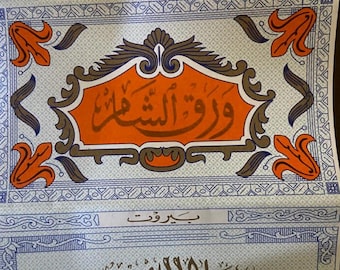 ورق الشام
بيروت